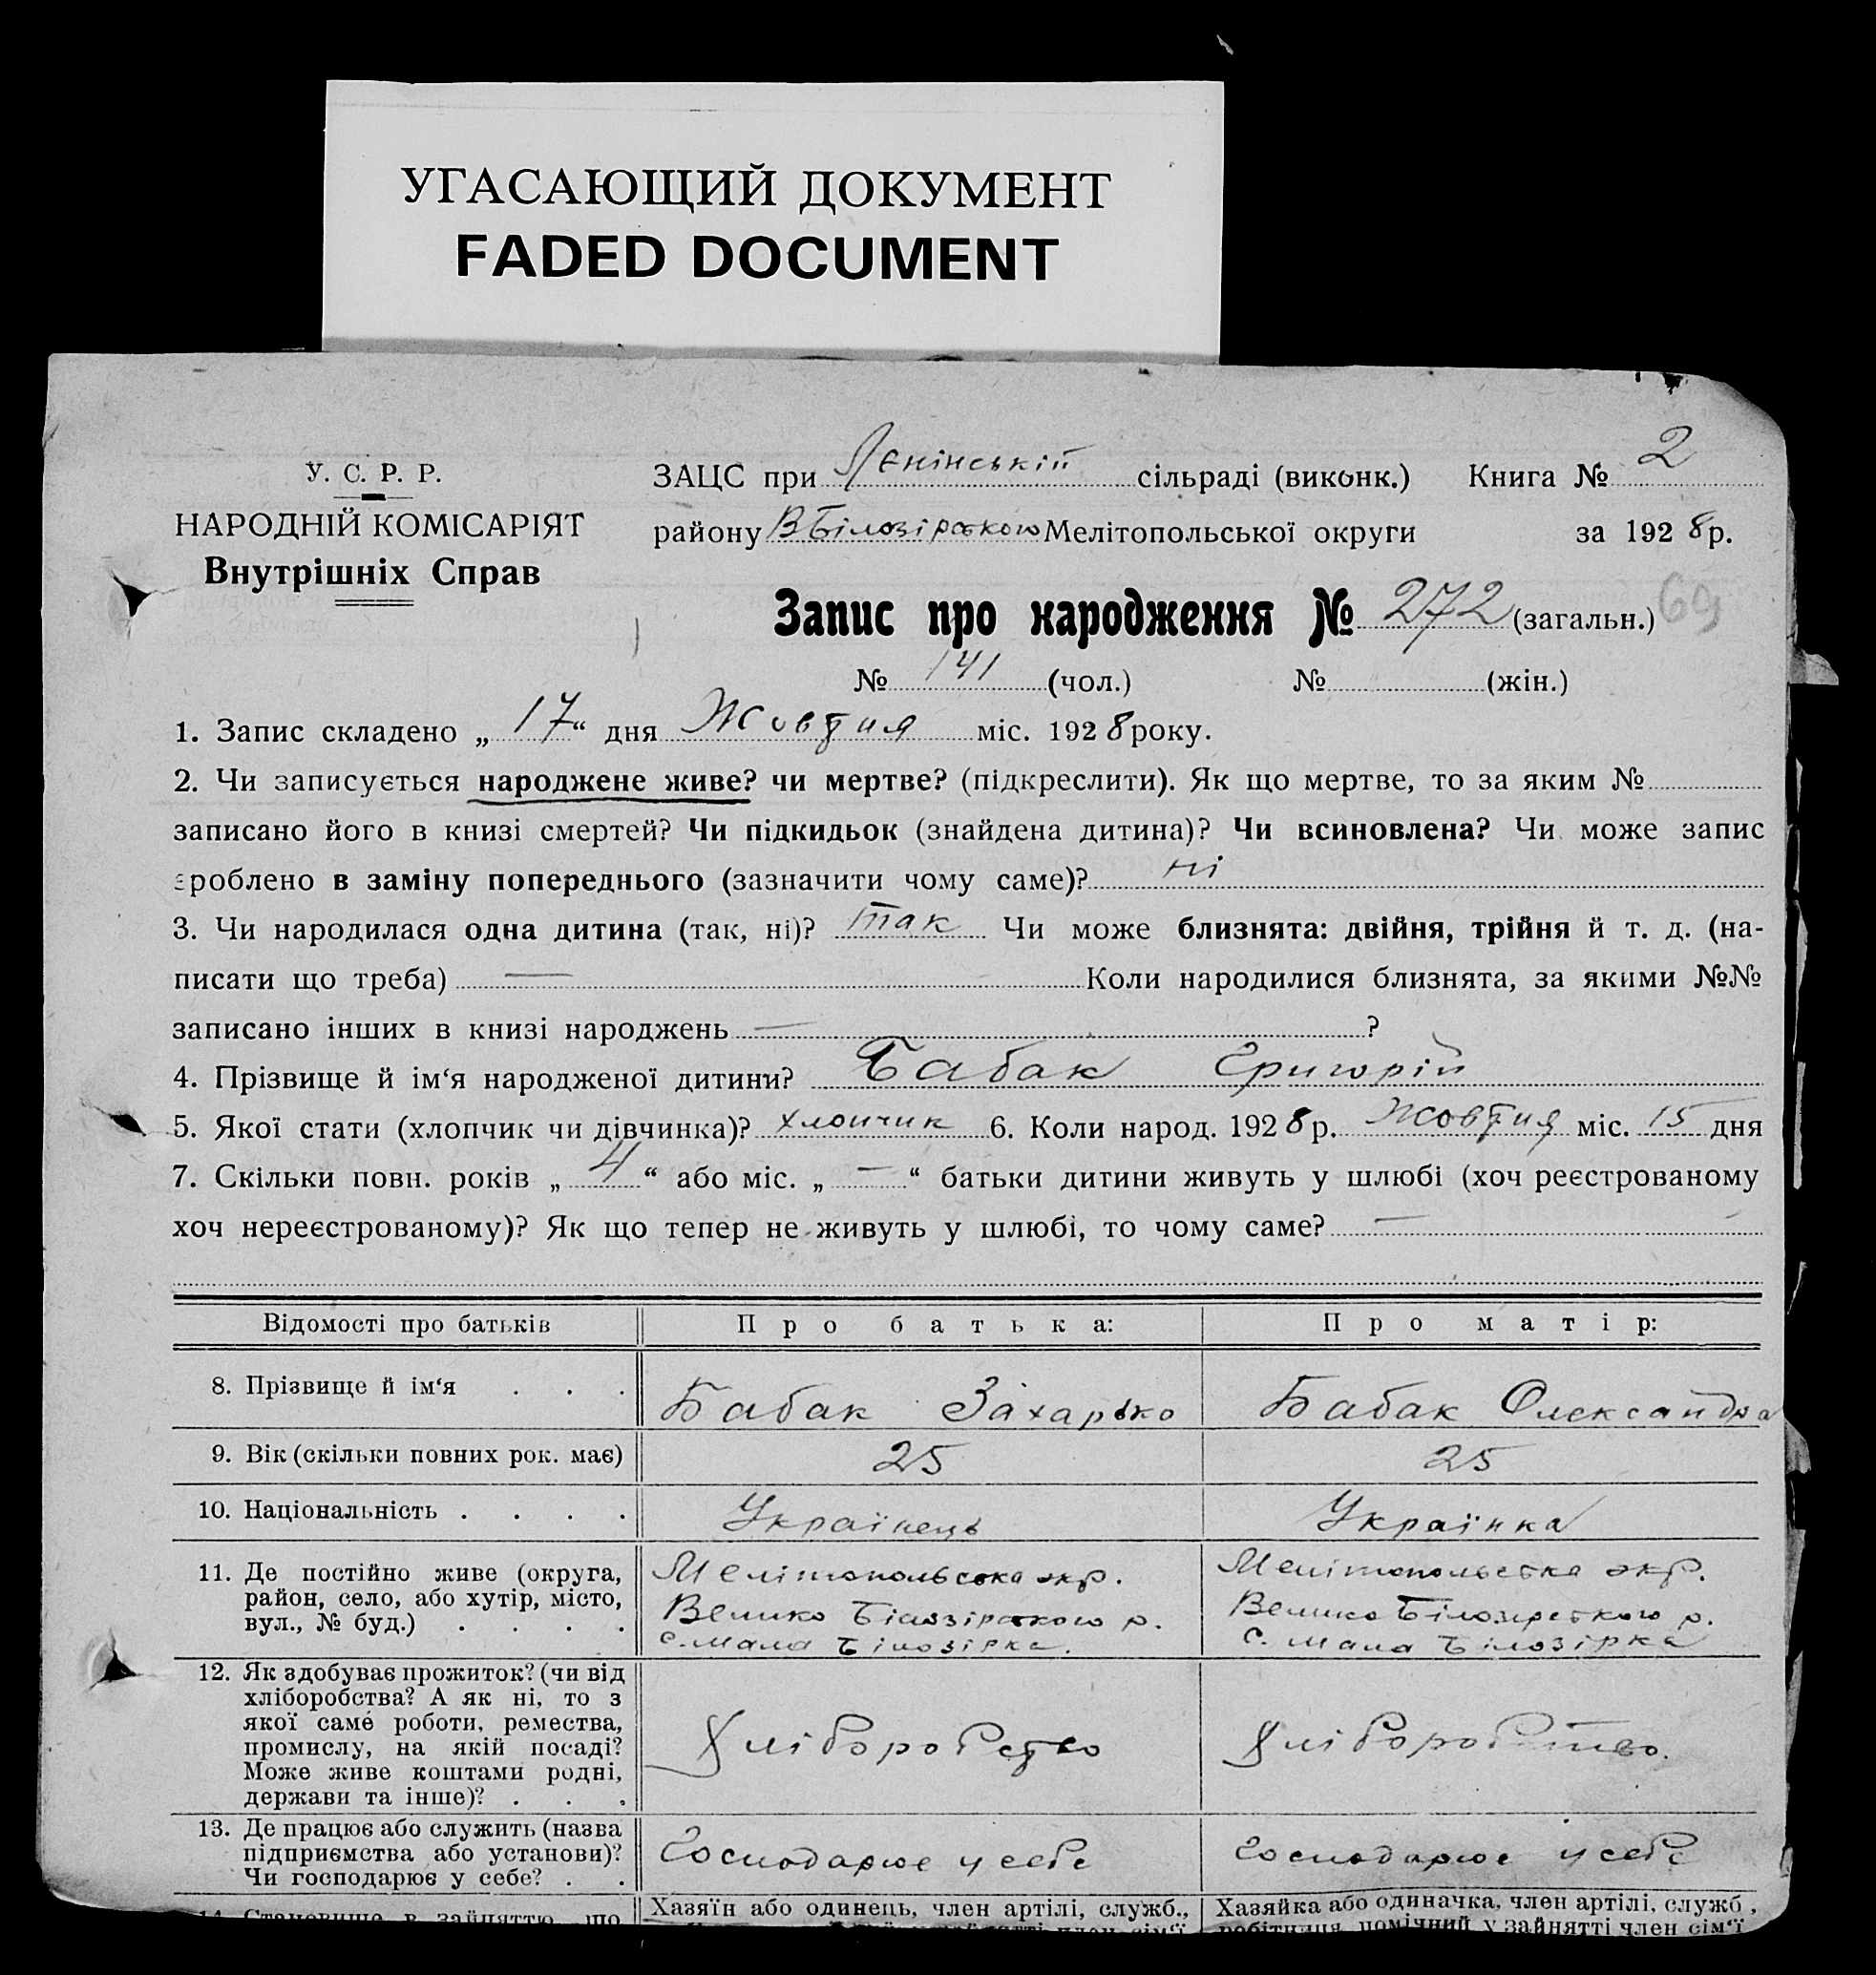 УГАСАЮЩИЙ ДОКУМЕНТ
FADED DOCUMENT
У. С. Р. Р.
НАРОДНІЙ КОМІСАРІЯТ
Внутрішніх Справ
ЗАЦС при Ленінській сільраді (виконк.) Книга № 2
району В Білозірського Мелітопольської округи за 1928 р.
Запис про народження № 272 (загальн.) 69
№ 141 (чол.) № (жін.)
1. Запис складено „ 17 “ дня Жовтня міс. 1928 року.
2. Чи записується народжене живе? чи мертве? (підкреслити). Як що мертве, то за яким №
записано його в книзі смертей? Чи підкидьок (знайдена дитина)? Чи всиновлена? Чи може запис
зроблено в заміну попереднього (зазначити чому саме)? ні
3. Чи народилася одна дитина (так, ні)? так Чи може близнята: двійня, трійня й т. д. (на-
писати що треба) — Коли народилися близнята, за якими №№
записано інших в книзі народжень — ?
4. Прізвище й ім‘я народженої дитини? Бабак Григорій
5. Якої стати (хлопчик чи дівчинка)? хлопчик 6. Коли народ. 1928 р. Жовтня міс. 15 дня
7. Скільки повн. років „ 4 “ або міс. „ — “ батьки дитини живуть у шлюбі (хоч реєстрованому
хоч нереєстрованому)? Як що тепер не живуть у шлюбі, то чому саме? —
Відомості про батьків Про батька: Про матір:
8. Прізвище й ім‘я . . . Бабак Захарько Бабак Олександра
9. Вік (скільки повних рок. має) 25 25
10. Національність . . . . Українець Українка
11. Де постійно живе (округа,
район, село, або хутір, місто,
вул., № буд.) . . . .
Мелітопольська окр.
Велико Білозірського р.
с. Мала Білозірка.
Мелітопольська окр.
Велико Білозірського р.
с. Мала Білозірка
12. Як здобуває прожиток? (чи від
хліборобства? А як ні, то з
якої саме роботи, ремества,
промислу, на якій посаді?
Може живе коштами родні,
держави та інше)? . . .
Хліборобство
Хліборобство.
13. Де працює або служить (назва
підприємства або установи)?
Чи господарює у себе? . .
Господарює у себе
Господарює у себе
14. Становище в зайняттю, що
Хазяїн або одинець, член артілі, служб.,
Хазяйка або одиначка, член артілі, служб.,
робітниця, помічний у зайнятті член сім‘ї